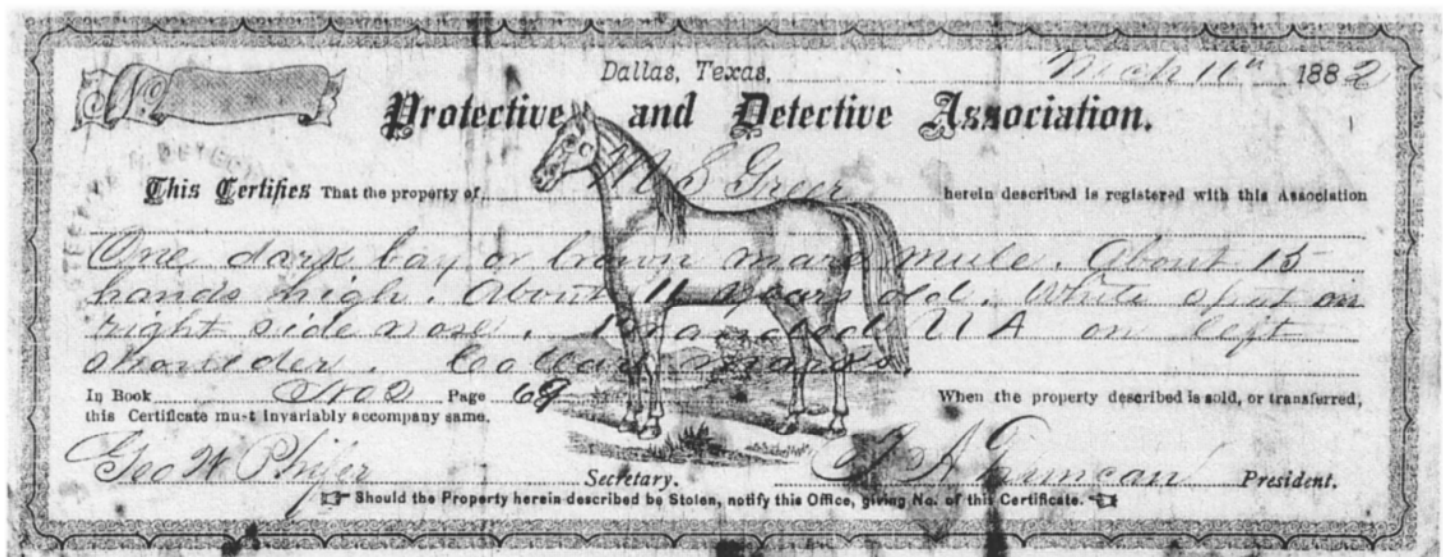 No
Dallas, Texas, March 11th 1882
Protective and Detective Association.
This Certifies That the property of M S Greer herein described is registered with this Association
One dark bay or brown mare mule. About 15
hands high. About 11 years old. White spot on
right side nose. Branded UA on left
shoulder. Collar marks.
In Book No 2 Page 69 When the property described is sold, or transferred,
this Certificate must invariably accompany same.
Geo W Phifer Secretary. A Duncan President.
Should the Property herein described be Stolen, notify this Office, giving No. of this Certificate.